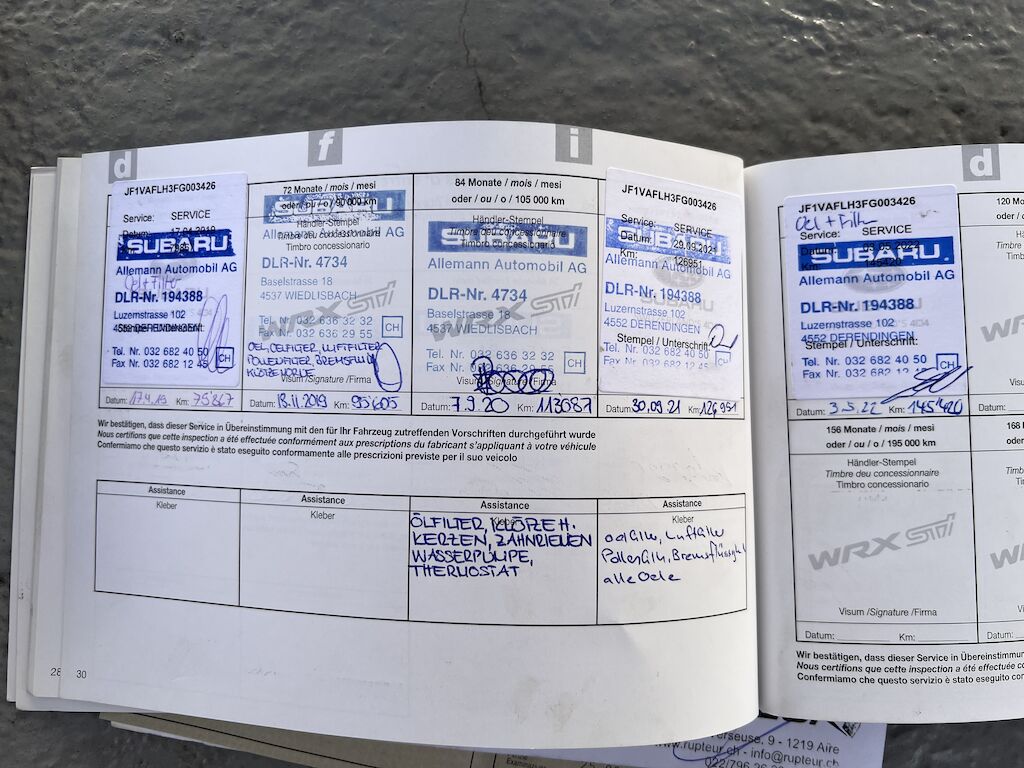 d
f
i
JF1VAFLH3FG003426
Service: SERVICE
Datum: 17.04.2019
SUBARU
Allemann Automobil AG
Oel + Filter
DLR-Nr. 194388
Luzernstrasse 102
4552 DERENDINGEN
Tel. Nr. 032 682 40 50
Fax Nr. 032 682 12 45
CH
Datum: 17.4.19 Km: 75867
72 Monate / mois / mesi
oder / ou / o / 90 000 km
Händler-Stempel
Timbre du concessionnaire
Timbro concessionario
Allemann Automobil AG
DLR-Nr. 4734
Baselstrasse 18
4537 WIEDLISBACH
WRX STI
Tel. Nr. 032 636 32 32
Fax Nr. 032 636 29 55
CH
OEL, OELFILTER, LUFTFILTER
POLLENFILTER, BREMSFL
Visum /Signature /Firma
Datum: 18.11.2019 Km: 95605
84 Monate / mois / mesi
oder / ou / o / 105 000 km
Händler-Stempel
Timbre du concessionnaire
Timbro concessionario
SUBARU
Allemann Automobil AG
DLR-Nr. 4734
Baselstrasse 18
4537 WIEDLISBACH
WRX STI
Tel. Nr. 032 636 32 32
Fax Nr. 032 636 29 55
CH
Visum /Signature /Firma
Datum: 7.9.20 Km: 113087
JF1VAFLH3FG003426
Service: SERVICE
Datum: 29.09.2021
Km: 126951
SUBARU
Allemann Automobil AG
DLR-Nr. 194388
Luzernstrasse 102
4552 DERENDINGEN
Stempel / Unterschrift:
Tel. Nr. 032 682 40 50
Fax Nr. 032 682 12 45
CH
Datum: 30.09.21 Km: 126951
Wir bestätigen, dass dieser Service in Übereinstimmung mit den für Ihr Fahrzeug zutreffenden Vorschriften durchgeführt wurde
Nous certifions que cette inspection a été effectuée conformément aux prescriptions du fabricant s'appliquant à votre véhicule
Confermiamo che questo servizio è stato eseguito conformamente alle prescrizioni previste per il suo veicolo
Assistance
Kleber
Assistance
Kleber
Assistance
Kleber
ÖLFILTER, KLÖTZE H.
KERZEN, ZAHNRIEMEN
WASSERPUMPE,
THERMOSTAT
Assistance
Kleber
oelfilter, Luftfilter
Pollenfilter, Bremsflüssigkeit
alle Oele
28
30
d
JF1VAFLH3FG003426
Oel + Filter
Service: SERVICE
Datum: 03.05.2022
Km: 145420
SUBARU
Allemann Automobil AG
DLR-Nr. 194388
Luzernstrasse 102
4552 DERENDINGEN
Stempel / Unterschrift:
Tel. Nr. 032 682 40 50
Fax Nr. 032 682 12 45
CH
Datum: 3.5.22 Km: 145420
120 Mo
Datum:
156 Monate / mois / mesi
oder / ou / o / 195 000 km
Händler-Stempel
Timbre du concessionnaire
Timbro concessionario
WRX STI
Visum /Signature /Firma
Datum: Km:
168
Datum:
Wir bestätigen, dass dieser Service in Übereinstimmun
Nous certifions que cette inspection a été effectuée co
Confermiamo che questo servizio è stato eseguito con
erseuse, 9 - 1219 Aire
www.rupteur.ch - info@rupteur.ch